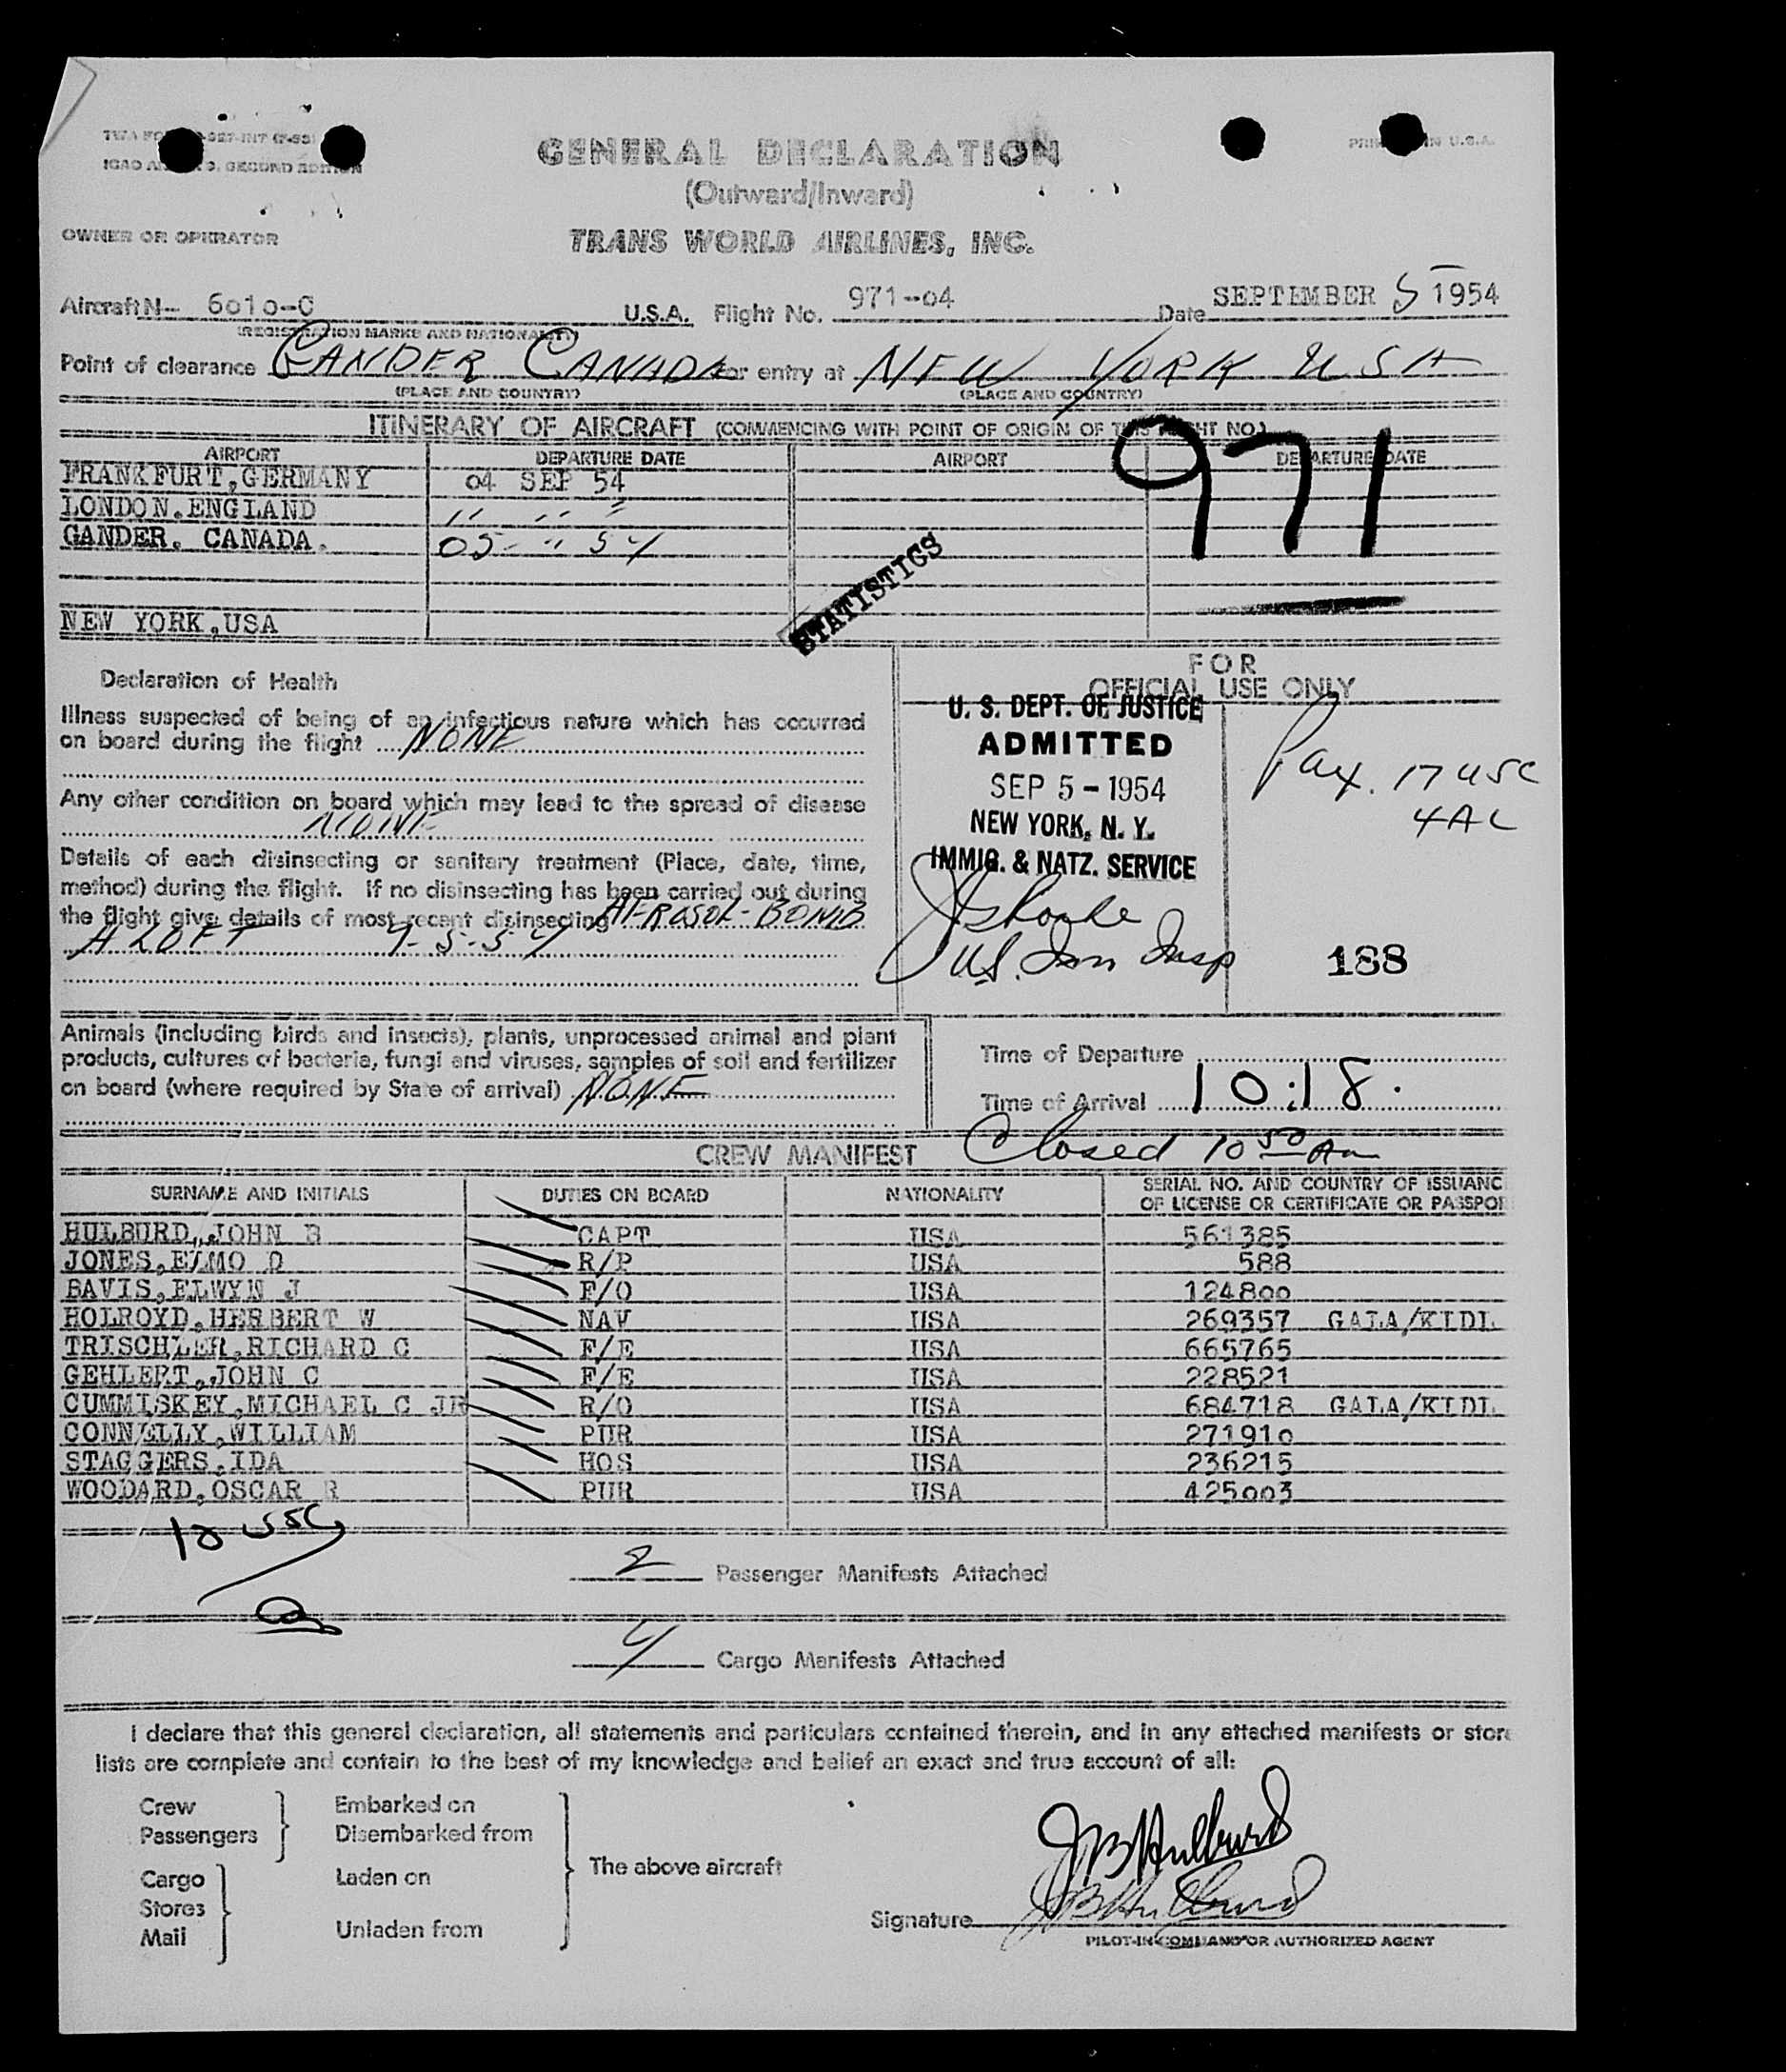 GENERAL DECLARATION
PRINTED IN U.S.A.
SECOND EDITION
(Outward/Inward)
OWNER OR OPERATOR
TRANS WORLD AIRLINES, INC.
Aircraft N- 6010-C U.S.A. Flight No. 971-04 Date SEPTEMBER 5 1954
(REGISTRATION MARKS AND NATIONALITY)
Point of clearance GANDER CANADA For entry at NEW YORK USA
(PLACE AND COUNTRY) (PLACE AND COUNTRY)
ITINERARY OF AIRCRAFT (COMMENCING WITH POINT OF ORIGIN OF THIS FLIGHT NO.)
AIRPORT DEPARTURE DATE AIRPORT DEPARTURE DATE
971
FRANKFURT,GERMANY 04 SEP 54
LONDON.ENGLAND " " "
GANDER. CANADA. 05- " 54
STATISTICS
NEW YORK,USA
Declaration of Health
Illness suspected of being of an infectious nature which has occurred
on board during the flight NONE
Any other condition on board which may lead to the spread of disease
NONE
Details of each disinsecting or sanitary treatment (Place, date, time,
method) during the flight. If no disinsecting has been carried out during
the flight give details of most recent disinsecting AEROSOL-BOMB
ALOFT 9-5-54
FOR
OFFICIAL USE ONLY
U. S. DEPT. OF JUSTICE
ADMITTED
SEP 5 - 1954
NEW YORK, N. Y.
IMMIG. & NATZ. SERVICE
US. Imm Insp
Pax. 17 USC
4 AL
188
Animals (including birds and insects), plants, unprocessed animal and plant
products, cultures of bacteria, fungi and viruses, samples of soil and fertilizer
on board (where required by State of arrival) NONE
Time of Departure
Time of Arrival 10:18.
CREW MANIFEST Closed 10 50 Am
SURNAME AND INITIALS DUTIES ON BOARD NATIONALITY SERIAL NO. AND COUNTRY OF ISSUANC
OF LICENSE OR CERTIFICATE OR PASSPOR
HULBURD,JOHN B CAPT USA 561385
JONES,ELMO D R/P USA 588
BAVIS,ELWYN J F/O USA 124800
HOLROYD,HERBERT W NAV USA 269357 GALA/KIDL
TRISCHLER,RICHARD C F/E USA 665765
GEHLERT,JOHN C F/E USA 228521
CUMMISKEY,MICHAEL C JR R/O USA 684718 GALA/KIDL
CONNELLY,WILLIAM PUR USA 271910
STAGGERS,IDA HOS USA 236215
WOODARD,OSCAR R PUR USA 425003
10 USC
2 Passenger Manifests Attached
4 Cargo Manifests Attached
I declare that this general declaration, all statements and particulars contained therein, and in any attached manifests or store
lists are complete and contain to the best of my knowledge and belief an exact and true account of all:
Crew Embarked on
Passengers Disembarked from
The above aircraft
Cargo Laden on
Stores
Mail Unladen from
JB Hulburd
Signature JB Hulburd
PILOT-IN-COMMAND OR AUTHORIZED AGENT